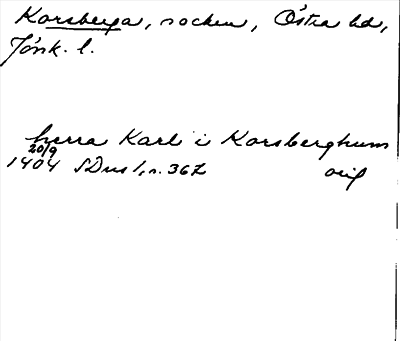 Korsberga, socken, Östra hd,
Jönk. l.
herra Karl i Korsberghum
20/9
1404 SDns 1, s. 367
orig